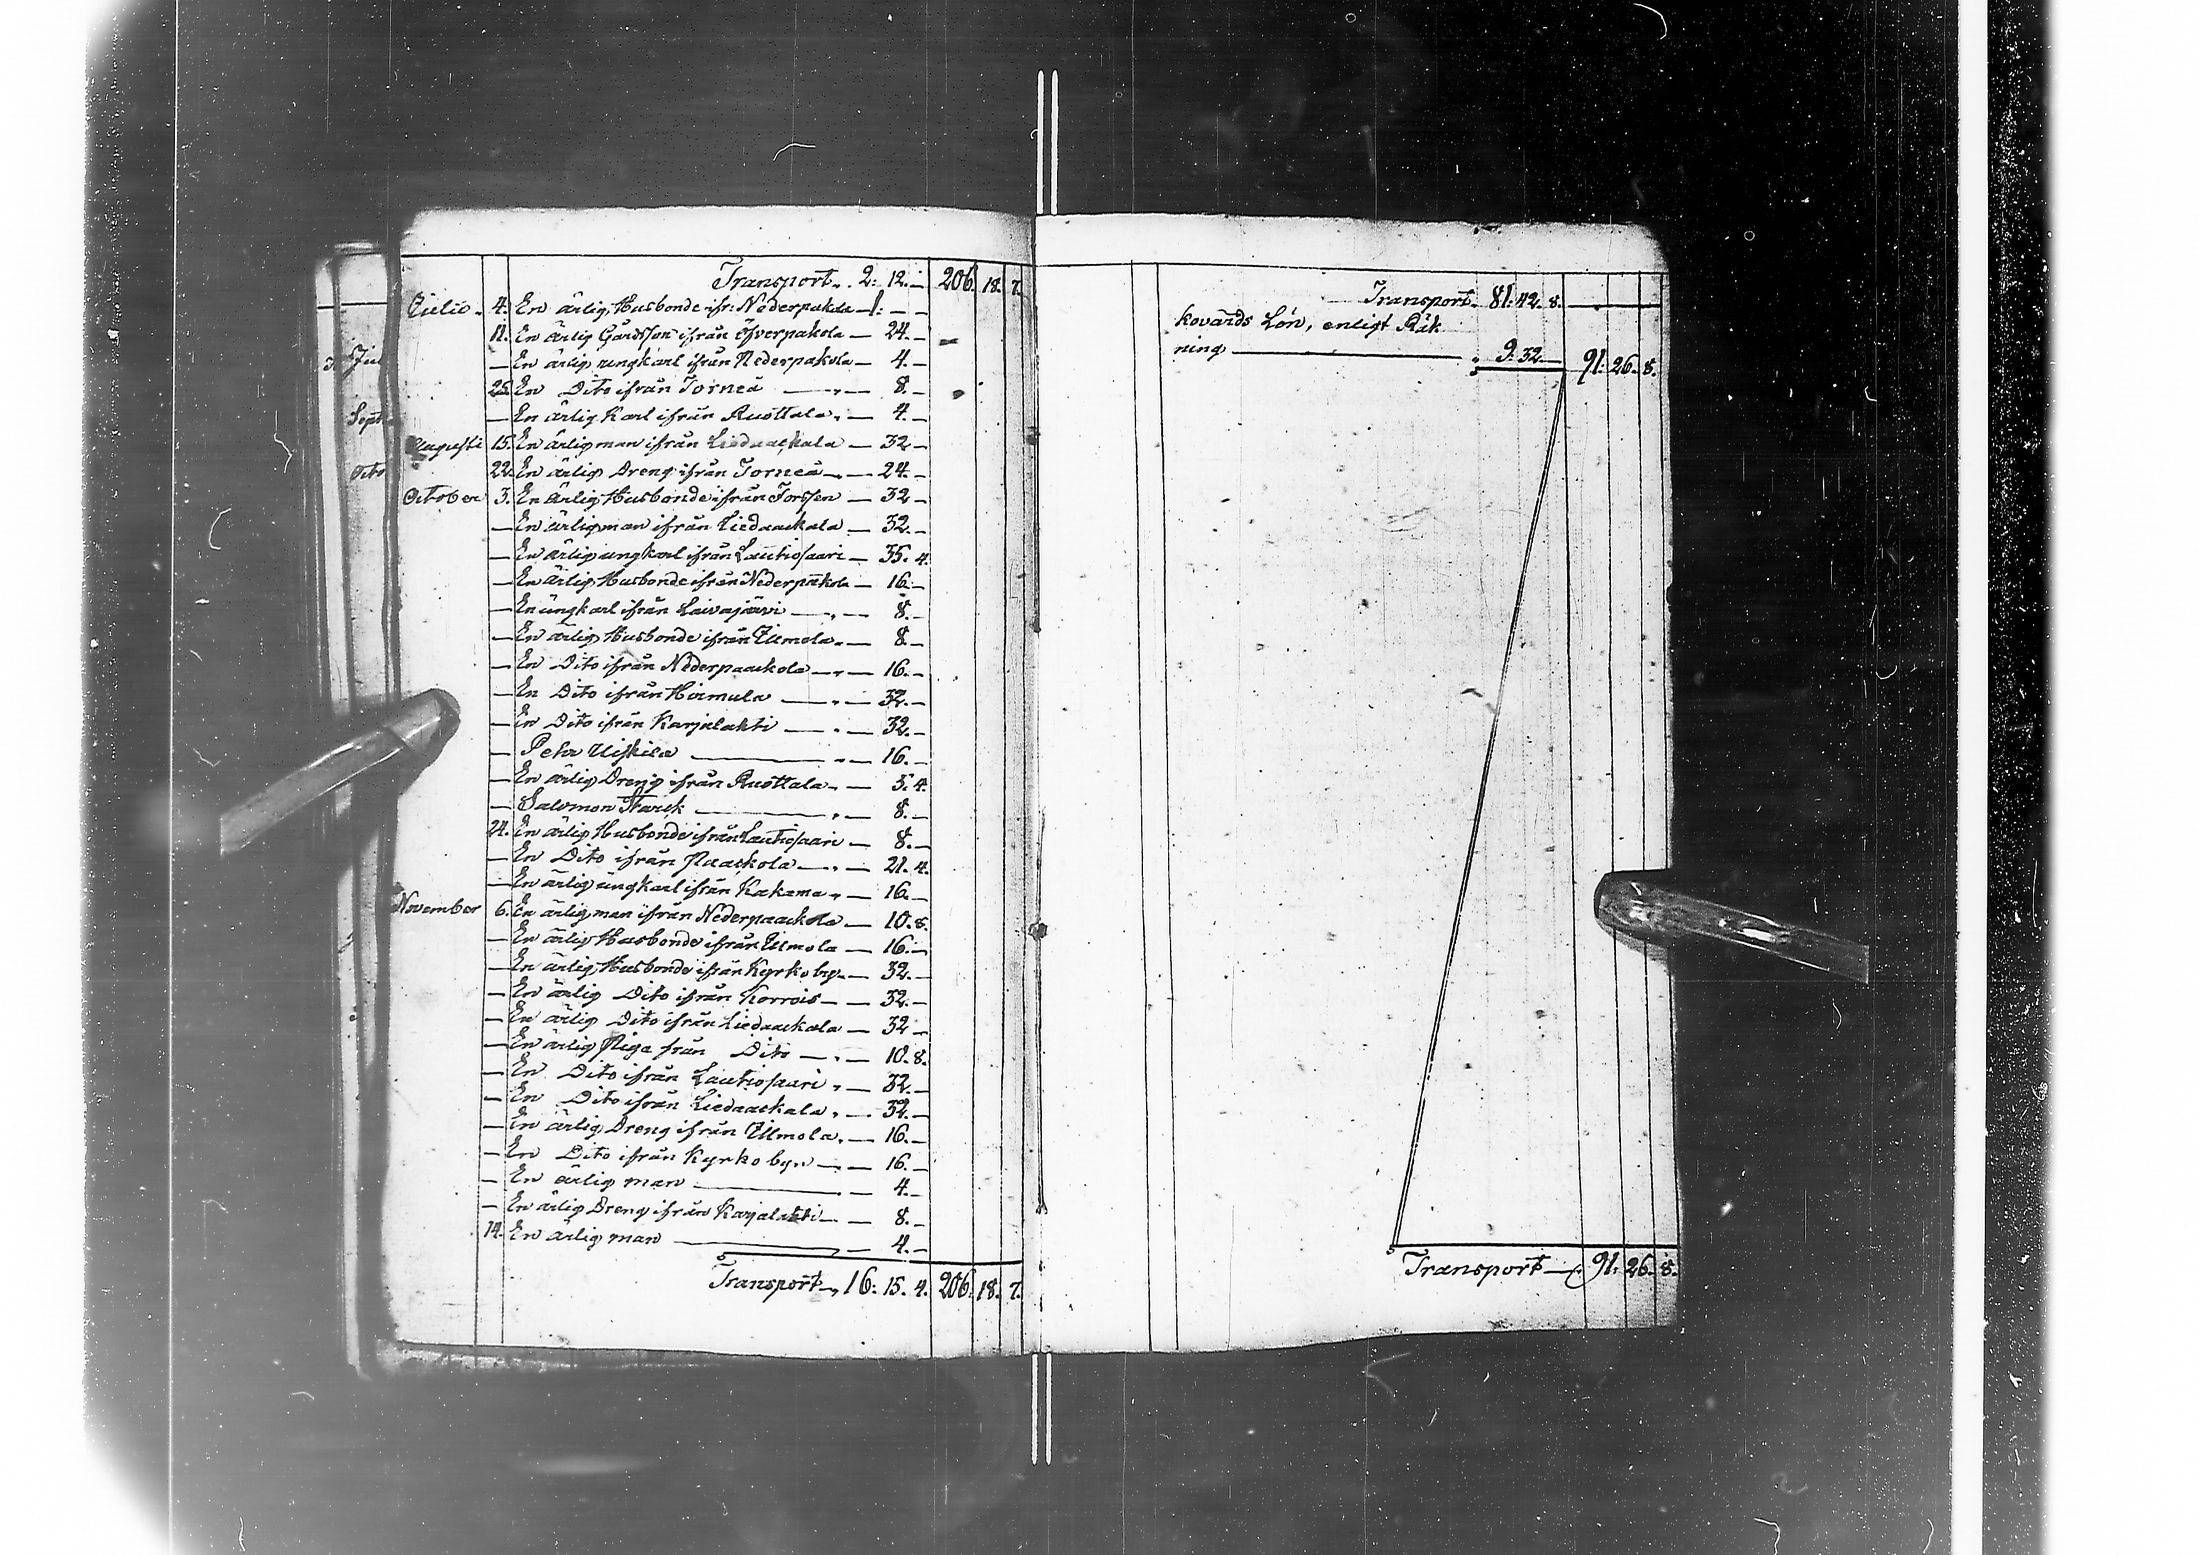 Transport. 2: 12.— 206. 18. 7.
Julii. 4. En ärlig Husbonde ifr: Nederpakola — 1: — —
11. En ärlig Gårdsson ifrån Öfverpakola — 24. —
— En ärlig ungkarl ifrån Nederpakola — 4. —
25. En Dito ifrån Torneå — 8. —
— En ärlig Karl ifrån Ruottala — 4. —
Augusti 15. En ärlig man ifrån Liedaackala — 32 —
22. En ärlig Dreng ifrån Torneå — 24. —
October 3. En ärlig Husbonde ifrån Torssen — 32 —
— En ärlig man ifrån Liedaackala — 32. —
— En ärlig ungkarl ifrån Lautiosaari — 35. 4.
— En ärlig Husbonde ifrån Nederpakola — 16. —
— En ungkarl ifrån Laivajärvi — 8. —
— En ärlig Husbonde ifrån Ilmola — 8 —
— En Dito ifrån Nederpaackola — 16. —
— En Dito ifrån Hirmula — 32. —
— En Dito ifrån Karjalakti — 32. —
— Pehr Uiskila — 16. —
— En ärlig Dreng ifrån Ruottala — 5. 4.
— Salomon Starck — 8. —
24. En ärlig Husbonde ifrån Lautiosaari — 8. —
— En Dito ifrån Paackola — 21. 4.
— En ärlig ungkarl ifrån Kakama — 16. —
November 6. En ärlig man ifrån Nederpaackola — 10. 8.
— En ärlig Husbonde ifrån Ilmola — 16. —
— En ärlig Husbonde ifrån Kyrkoby — 32. —
— En ärlig Dito ifrån Korrois — 32. —
— En ärlig Dito ifrån Liedaackala — 32 —
— En ärlig Piga från Dito — 10. 8.
— En Dito ifrån Lautiosaari — 32. —
— En Dito ifrån Liedaackala — 32. —
— En ärlig Dreng ifrån Ilmola — 16. —
— En Dito ifrån Kyrkobyn — 16. —
— En ärlig man — 4. —
— En ärlig Dreng ifrån Karjalakti — 8. —
14. En ärlig man — 4. —
Transport 16: 15. 4. 206. 18. 7.
Sept
Transport. 81: 42. 8.
kovårds Lön, enligt Räk
ning — 9: 32 — 91: 26. 8.
Transport — 91: 26. 8.